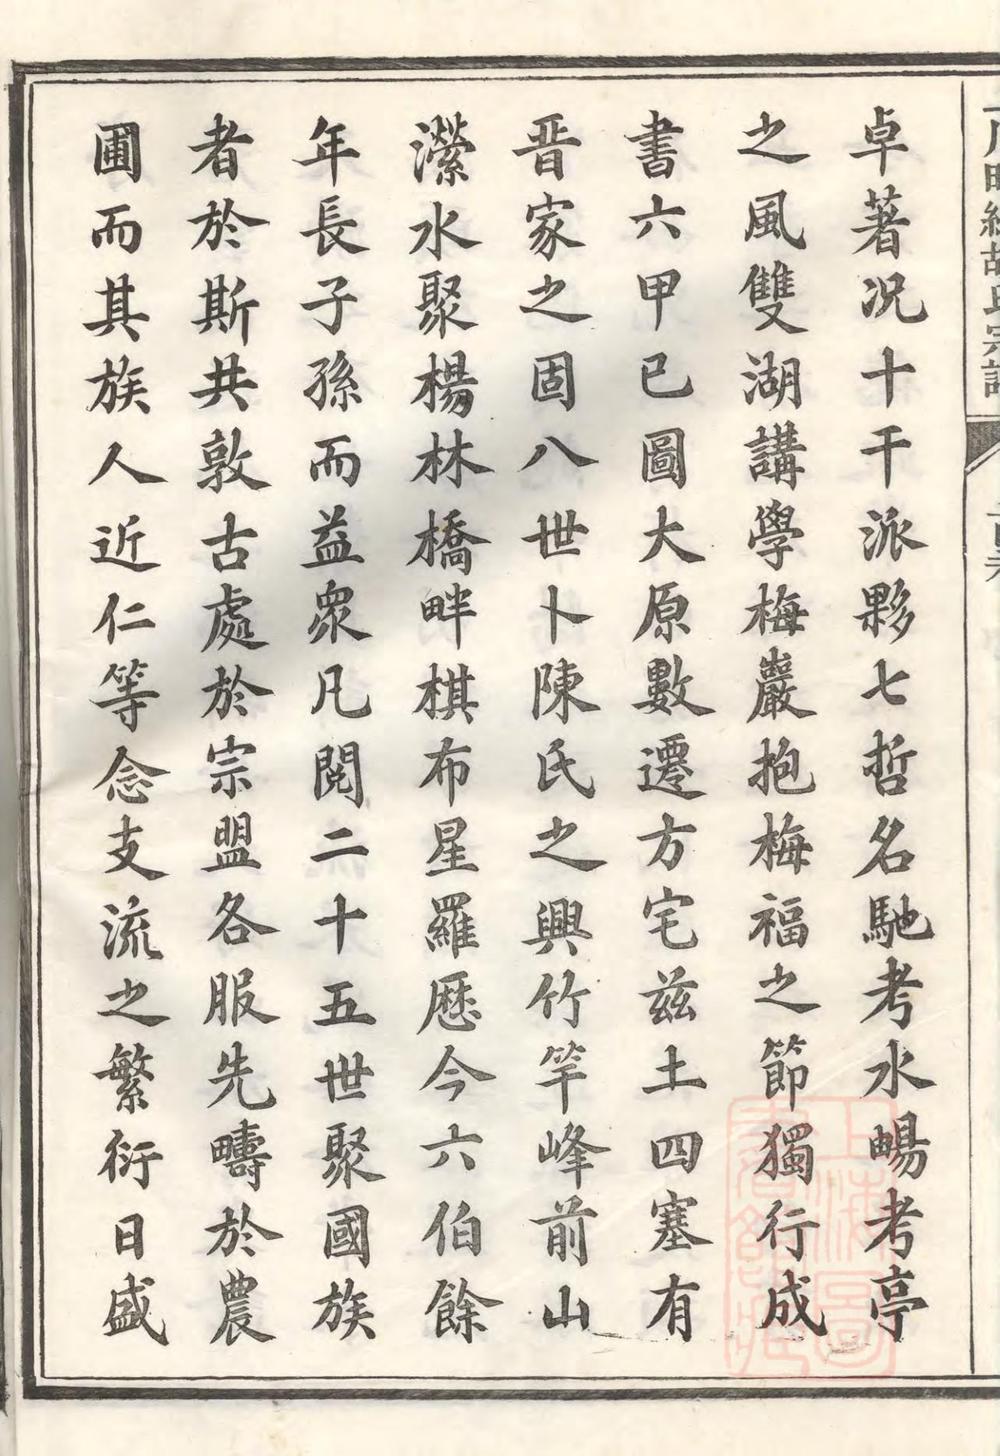 卓著况十干派夥七哲名馳考水暢考亭
之風雙湖講學梅巖抱梅福之節獨行成
書六甲已圖大原數遷方宅兹土四塞有
晋家之固八世卜陳氏之興竹竿峰前山
瀠水聚楊林橋畔棋布星羅歷今六伯餘
年長子孫而益衆凡閱二十五世聚國族
者於斯共敦古處於宗盟各服先疇於農
圃而其族人近仁等念支流之繁衍日盛
上海圖書館藏